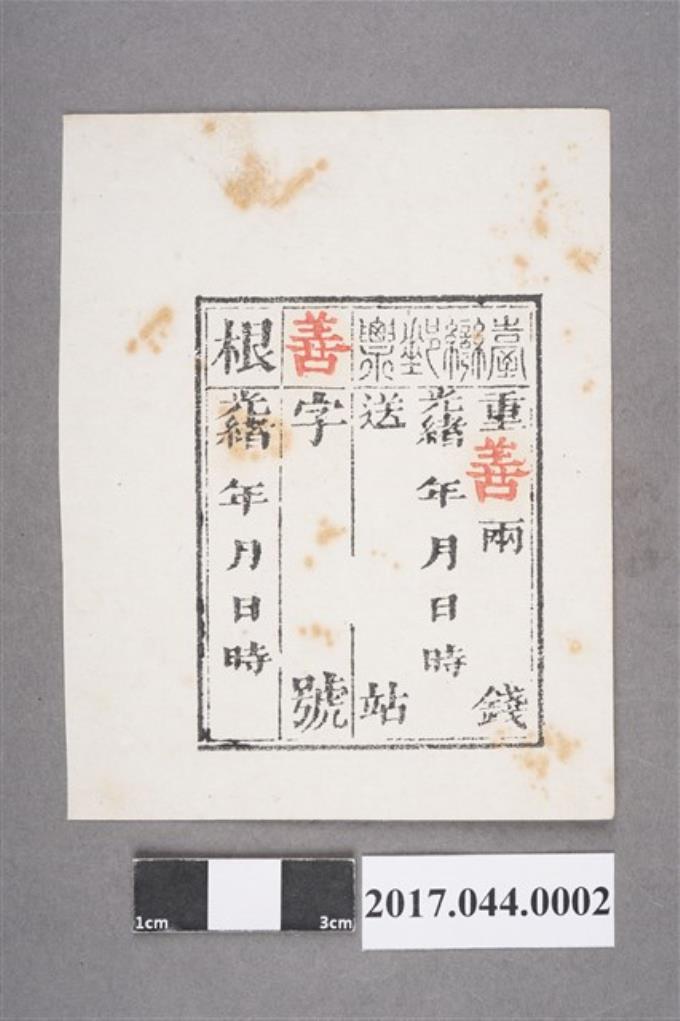 臺灣郵票
重善兩錢
光緒年月日時
送站
善字號
根
光緒年月日時
1cm 3cm
2017.044.0002